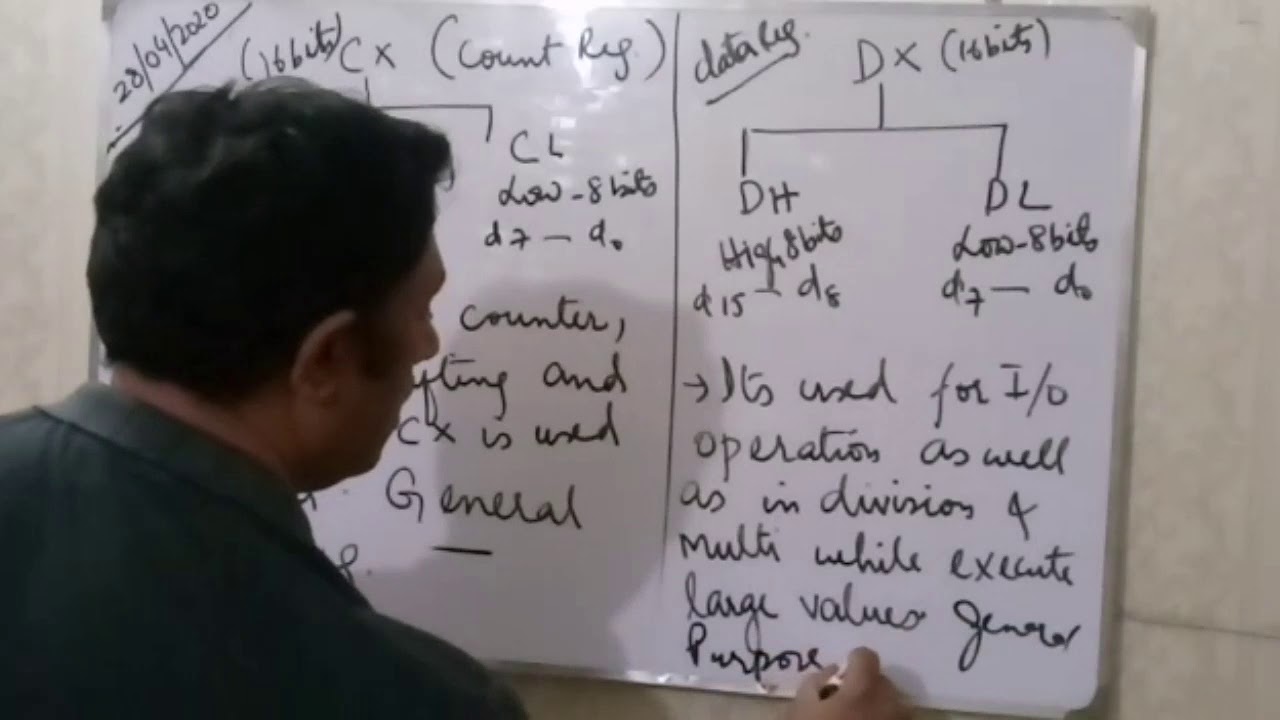 28/04/2020
(16 bits) CX (Count Reg.)
CL
Low-8 bits
d7 — d0
counter,
fting and
CX is used
General
data Reg.
DX (16 bits)
DH
DL
High 8 bits
Low-8 bits
d15 — d8
d7 — d0
→ Its used for I/O
operation as well
as in division &
multi while execute
large values General
Purpose